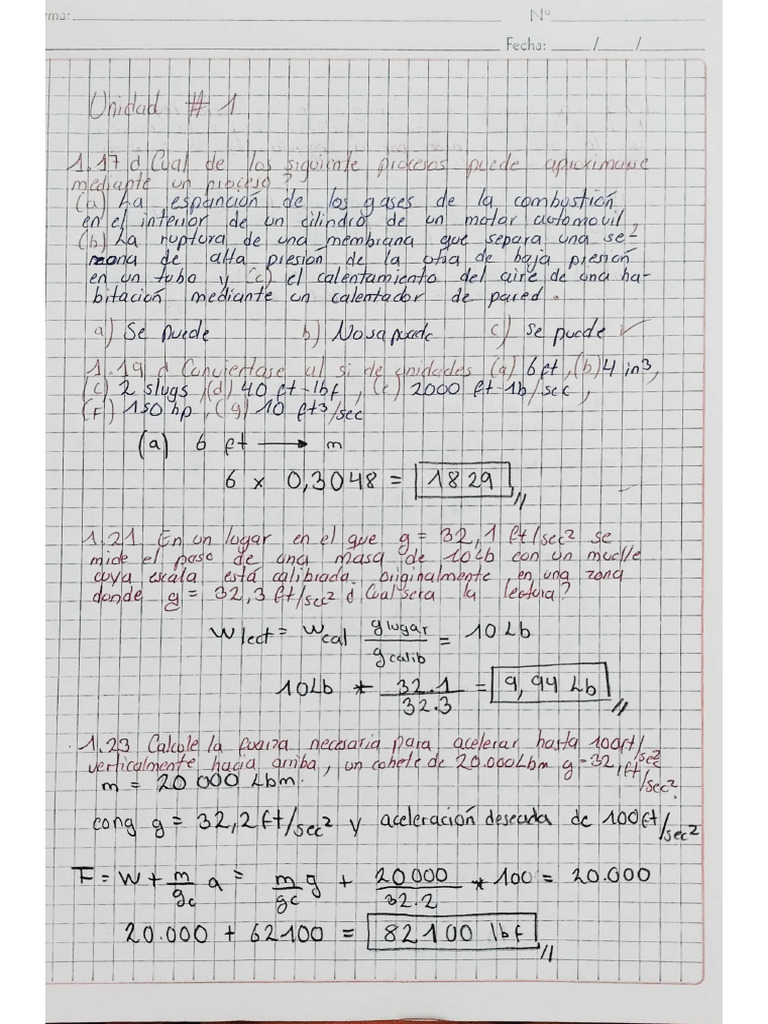 rma:
Nº
Fecha: / /
Unidad # 1
1.17 d Cual de los siguiente procesos puede aproximarse
mediante un proceso?
(a) La espanción de los gases de la combustión
en el interior de un cilindro de un motar automovil
(b) La ruptura de una membrana que separa una
de alta presión de la otra de baja presión
en un tubo y (c) el calentamiento del aire de una ha-
bitación mediante un calentador de pared.
a) Se puede b) No sa puede c) Se puede ✓
1.19 d Conviertase al si de unidades (a) 6ft, (b) 4 in3,
(c) 2 slugs, (d) 40 ft-lbf, (e) 2000 ft-lb/sec,
(F) 150 hp, (g) 10 ft3/sec
(a) 6 ft → m
6 x 0,3048 = 1829
1.21 En un lugar en el que g = 32,1 ft/sec² se
mide el peso de una masa de 10Lb con un muelle
cuya escala está calibrada originalmente, en una zona
donde g = 32,3 ft/sec² d Cual sera la lectura?
W lect = W cal g lugar / g calib = 10 Lb
10Lb * 32.1 / 32.3 = 9,94 Lb
1.23 Calcule la fuerza necesaria para acelerar hasta 100ft/sec²
verticalmente hacia arriba, un cohete de 20.000Lbm g=32, ft/sec².
m = 20 000 Lbm.
cong g = 32,2 ft/sec² y aceleración deseada de 100ft/sec²
F = W + m/gc a = m/gc g + 20 000/32.2 * 100 = 20.000
20.000 + 62100 = 82100 lbf